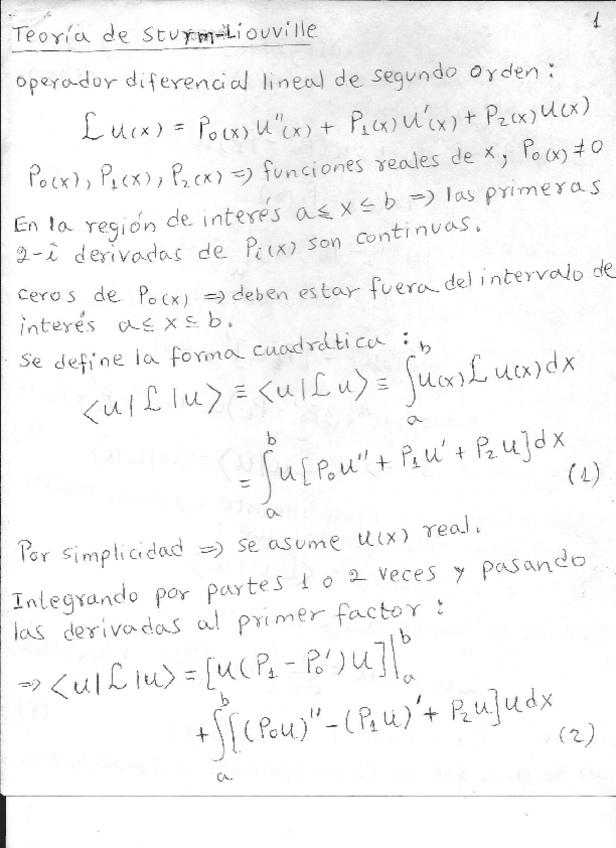 1
Teoría de Sturm-Liouville
operador diferencial lineal de segundo orden:
£ u(x) = P₀(x) u''(x) + P₁(x) u'(x) + P₂(x) u(x)
P₀(x), P₁(x), P₂(x) ⇒ funciones reales de x; P₀(x) ≠ 0
En la región de interés a ≤ x ≤ b ⇒ las primeras
2-i derivadas de Pᵢ(x) son continuas.
ceros de P₀(x) ⇒ deben estar fuera del intervalo de
interés a ≤ x ≤ b.
se define la forma cuadrática:
<u|£|u> ≡ <u|£u> ≡ ∫ₐᵇ u(x) £ u(x) dx
= ∫ₐᵇ u [P₀u'' + P₁u' + P₂u] dx (1)
Por simplicidad ⇒ se asume u(x) real.
Integrando por partes 1 o 2 veces y pasando
las derivadas al primer factor:
⇒ <u|£|u> = [u(P₁ - P₀')u]|ₐᵇ
+ ∫ₐᵇ [(P₀u)'' - (P₁u)' + P₂u] u dx (2)